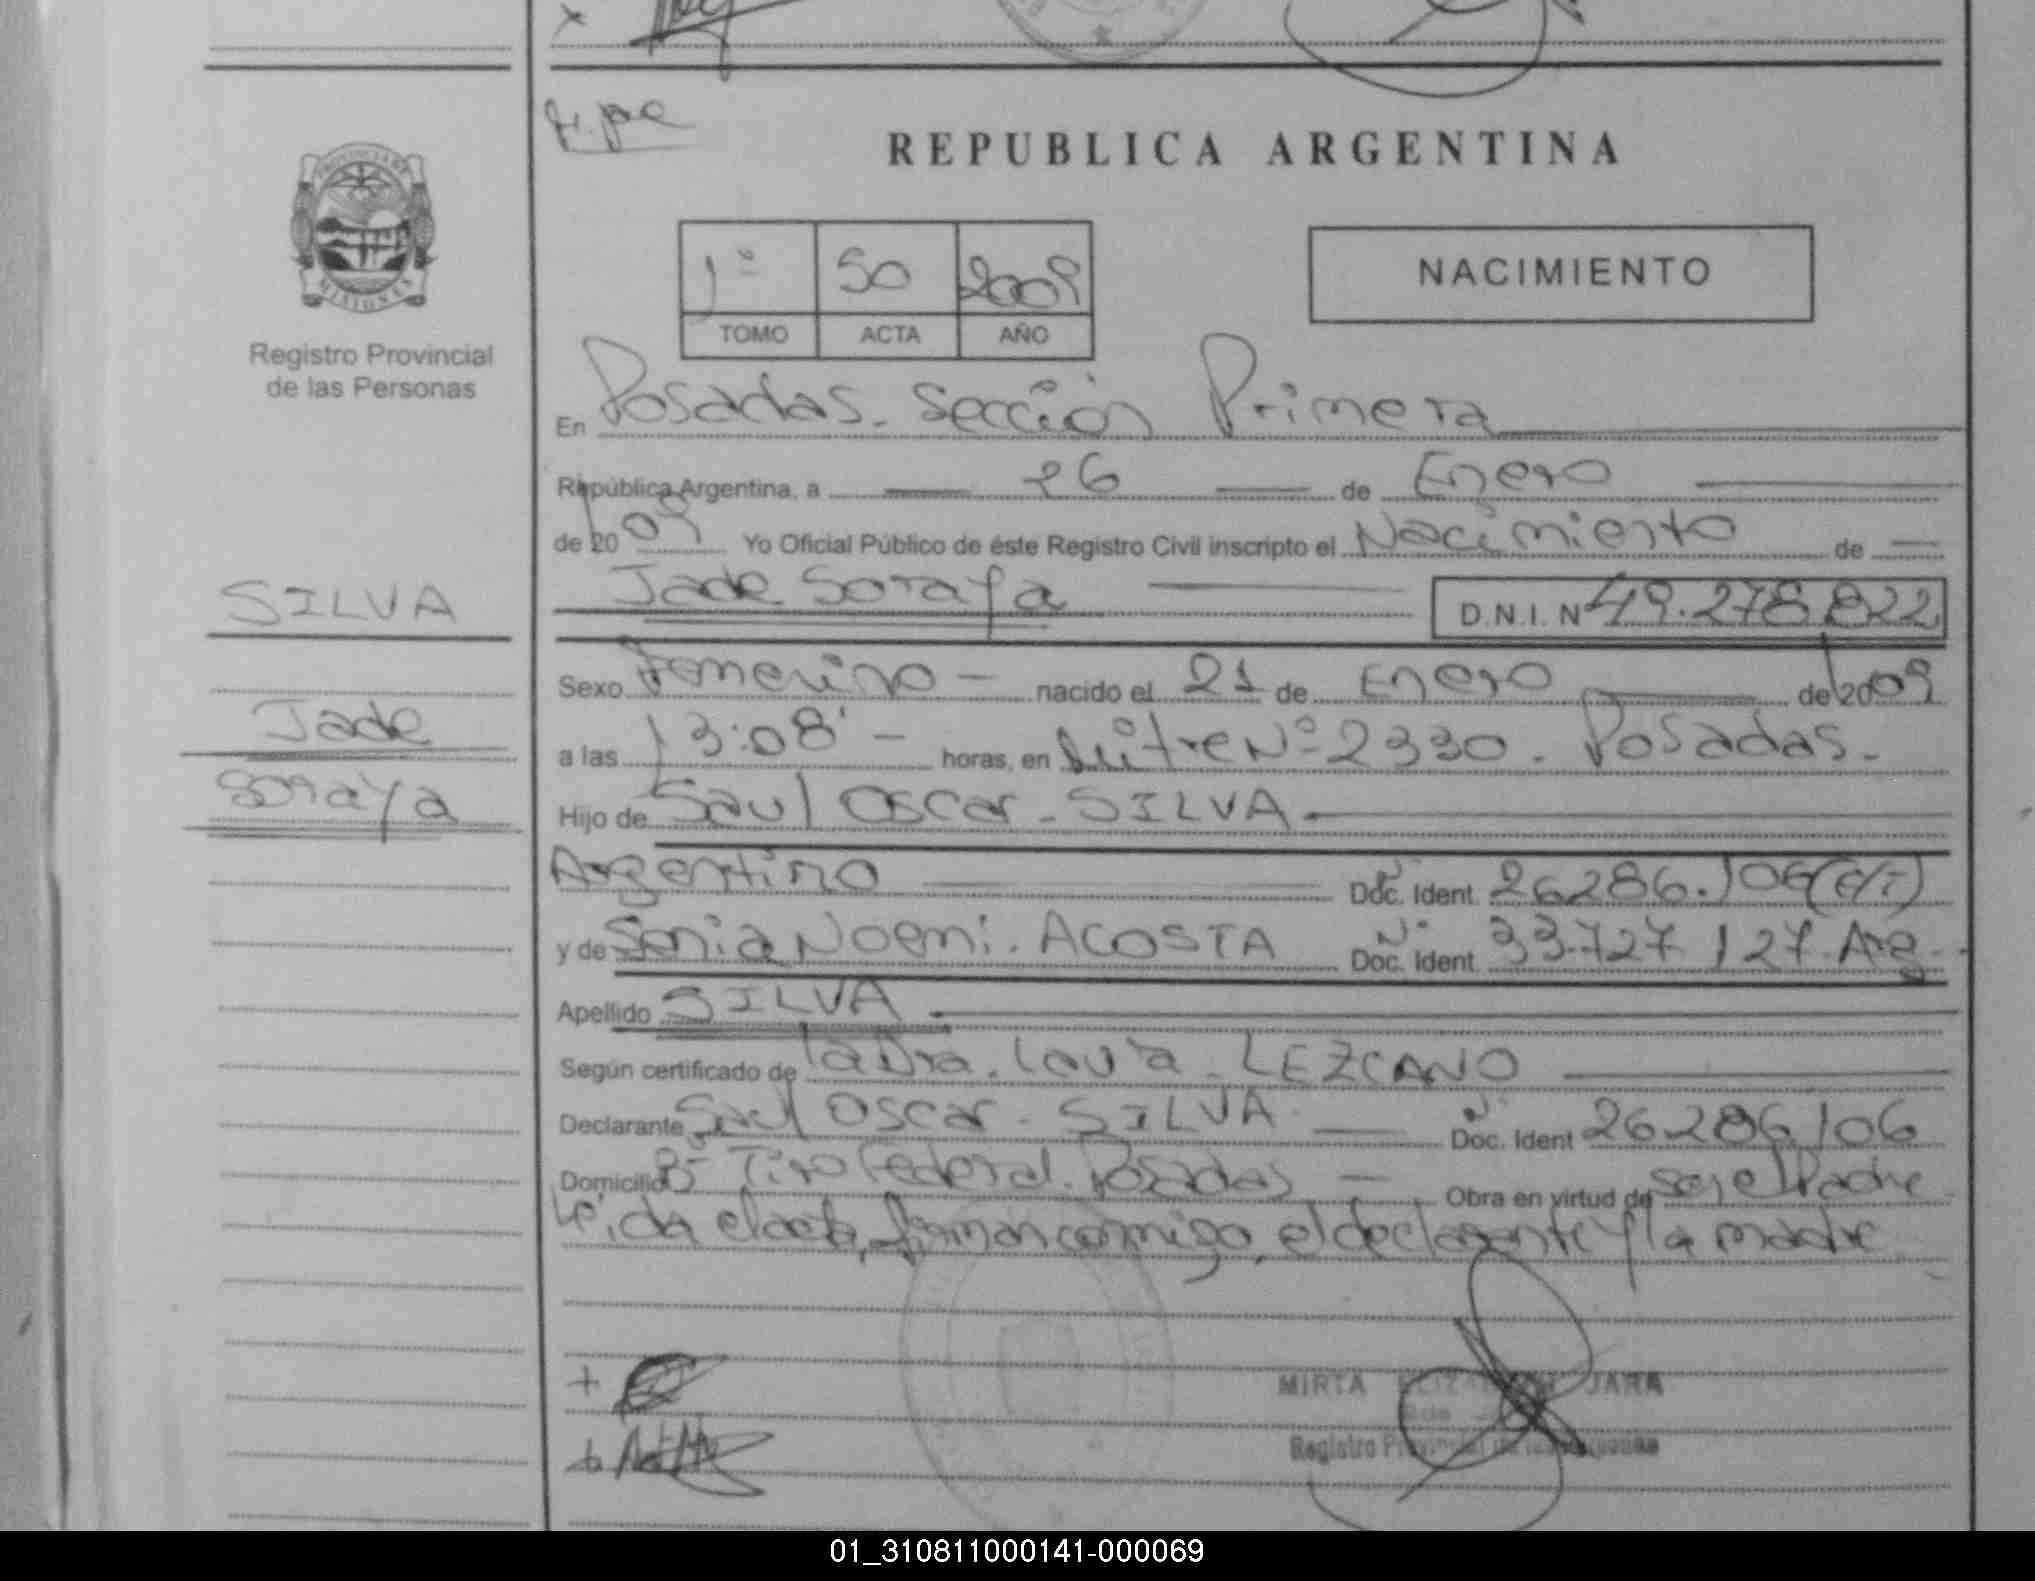 REPUBLICA ARGENTINA
PROVINCIA DE
MISIONES
Registro Provincial
de las Personas
1º 50 2009
TOMO ACTA AÑO
NACIMIENTO
En Posadas. Sección Primera
República Argentina, a 26 de Enero
de 2009 Yo Oficial Público de éste Registro Civil inscripto el Nacimiento de
Jade Soraya D.N.I. Nº 49.278.822
SILVA
Jade
Soraya
Sexo Femenino nacido el 21 de Enero de 2009
a las 13:08' horas, en Mitre Nº 2330. Posadas.
Hijo de Saul Oscar. SILVA.
Argentino Doc. Ident. 26286.106 (E/T)
y de Sonia Noemi. ACOSTA Doc. Ident. 33.727 127. Arg.
Apellido SILVA
Según certificado de la Dra. Laura. LEZCANO
Declarante Saul Oscar. SILVA Doc. Ident 26286106
Domicilio Bº Tiro Federal. Posadas Obra en virtud de ser el Padre
Leida el acta, firman conmigo, el declarante y la madre
MIRTA ELIZABETH JARA
Registro Provincial de las Personas
01_310811000141-000069